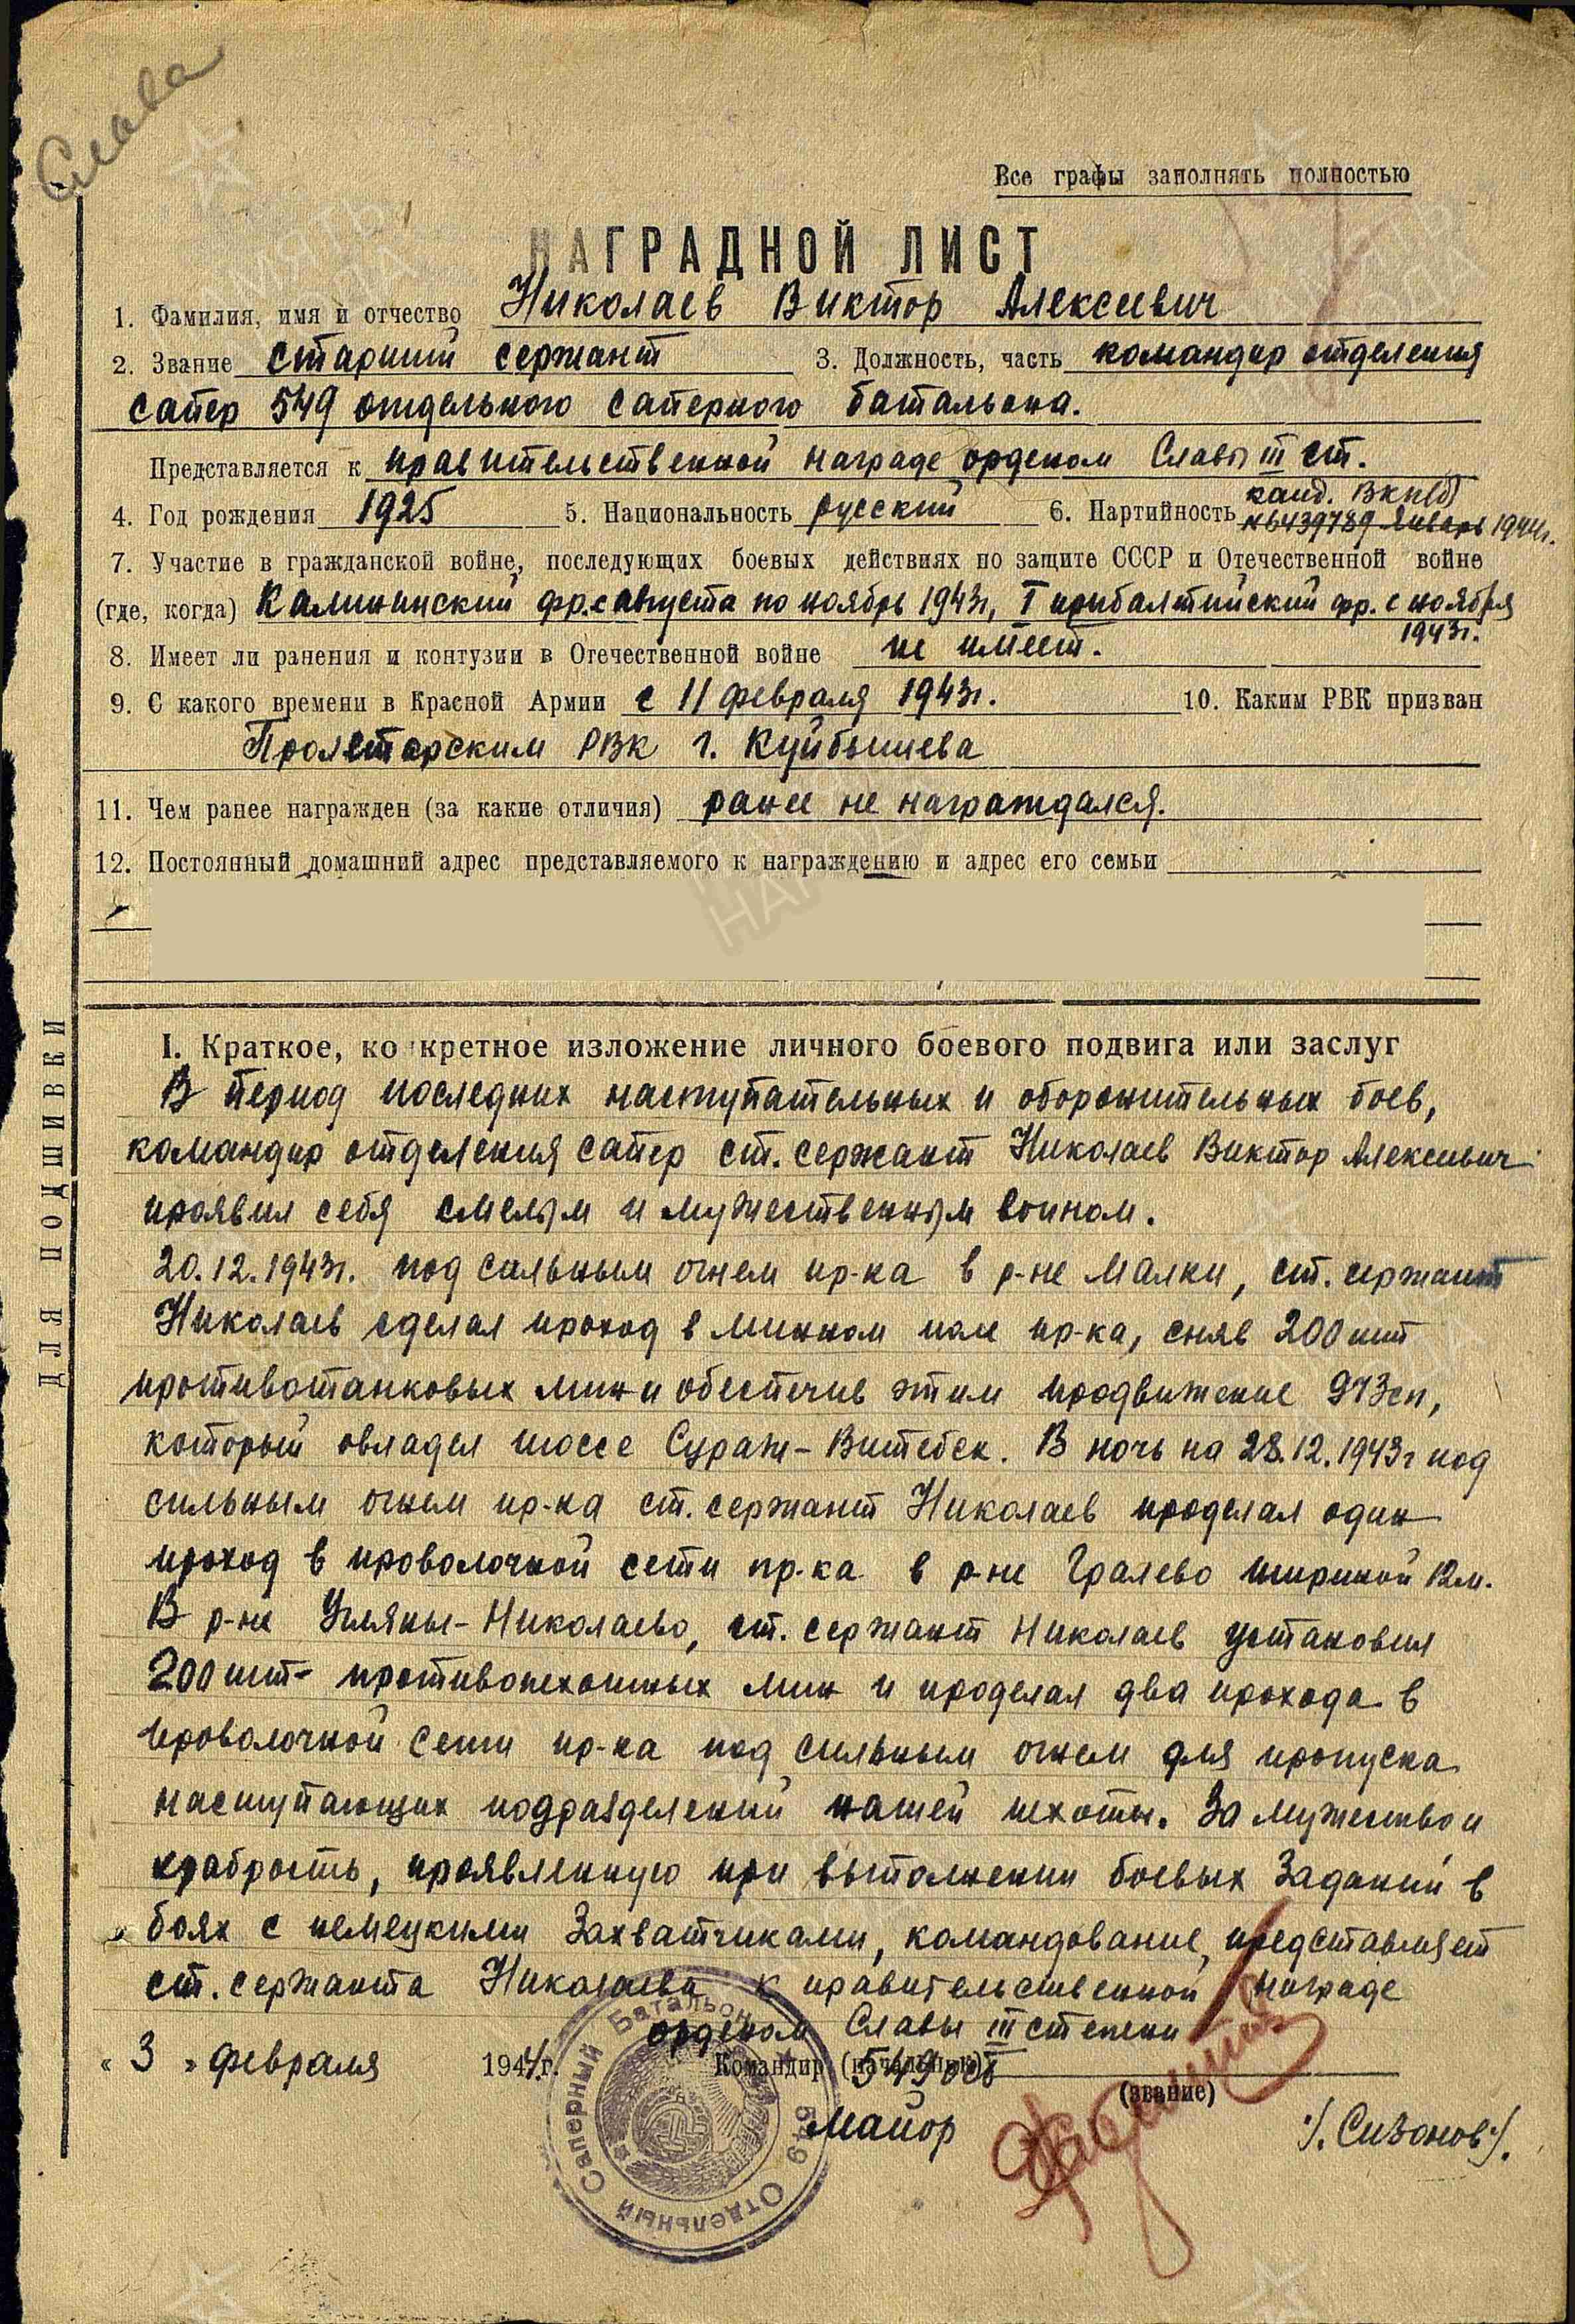 Слава
Все графы заполнять полностью
НАГРАДНОЙ ЛИСТ
1. Фамилия, имя и отчество Николаев Виктор Алексеевич
2. Звание старший сержант 3. Должность, часть командир отделения
сапер 549 отдельного саперного батальона.
Представляется к правительственной награде орденом Славы III ст.
4. Год рождения 1925 5. Национальность русский 6. Партийность канд. ВКП(б)
№6439789 январь 1944г.
7. Участие в гражданской войне, последующих боевых действиях по защите СССР и Отечественной войне
(где, когда) Калининский фр. с августа по ноябрь 1943г, I прибалтийский фр. с ноября
1943г.
8. Имеет ли ранения и контузии в Отечественной войне не имеет.
9. С какого времени в Красной Армии с 11 февраля 1943г. 10. Каким РВК призван
Пролетарским РВК г. Куйбышева
11. Чем ранее награжден (за какие отличия) ранее не награждался.
12. Постоянный домашний адрес представляемого к награждению и адрес его семьи
I. Краткое, ко кретное изложение личного боевого подвига или заслуг
В период последних наступательных и оборонительных боев,
командир отделения сапер ст. сержант Николаев Виктор Алексеевич
проявил себя смелым и мужественным воином.
20.12.1943г. под сильным огнем пр-ка в р-не Малки, ст. сержант
Николаев сделал проход в минном поле пр-ка, сняв 200 шт
противотанковых мин и обеспечив этим продвижение 973сп,
который овладел шоссе Сураж-Витебск. В ночь на 28.12.1943г под
сильным огнем пр-ка ст. сержант Николаев проделал один
проход в проволочной сети пр-ка в р-не Гралево шириной 12м.
В р-не Уляны-Николаево, ст. сержант Николаев установил
200 шт- противопехотных мин и проделал два прохода в
проволочной сети пр-ка под сильным огнем для пропуска
наступающих подразделений нашей пехоты. За мужество и
храбрость, проявленную при выполнении боевых заданий в
боях с немецкими захватчиками, командование, представляет
ст. сержанта Николаева к правительственной награде
орденом Славы III степени
" 3 " февраля 1944г. Командир (начальник) 549 осб
(звание)
майор /. Сизонов/.
549 Отдельный Саперный Батальон
ДЛЯ ПОДШИВКИ
ПАМЯТЬ
НАРОДА